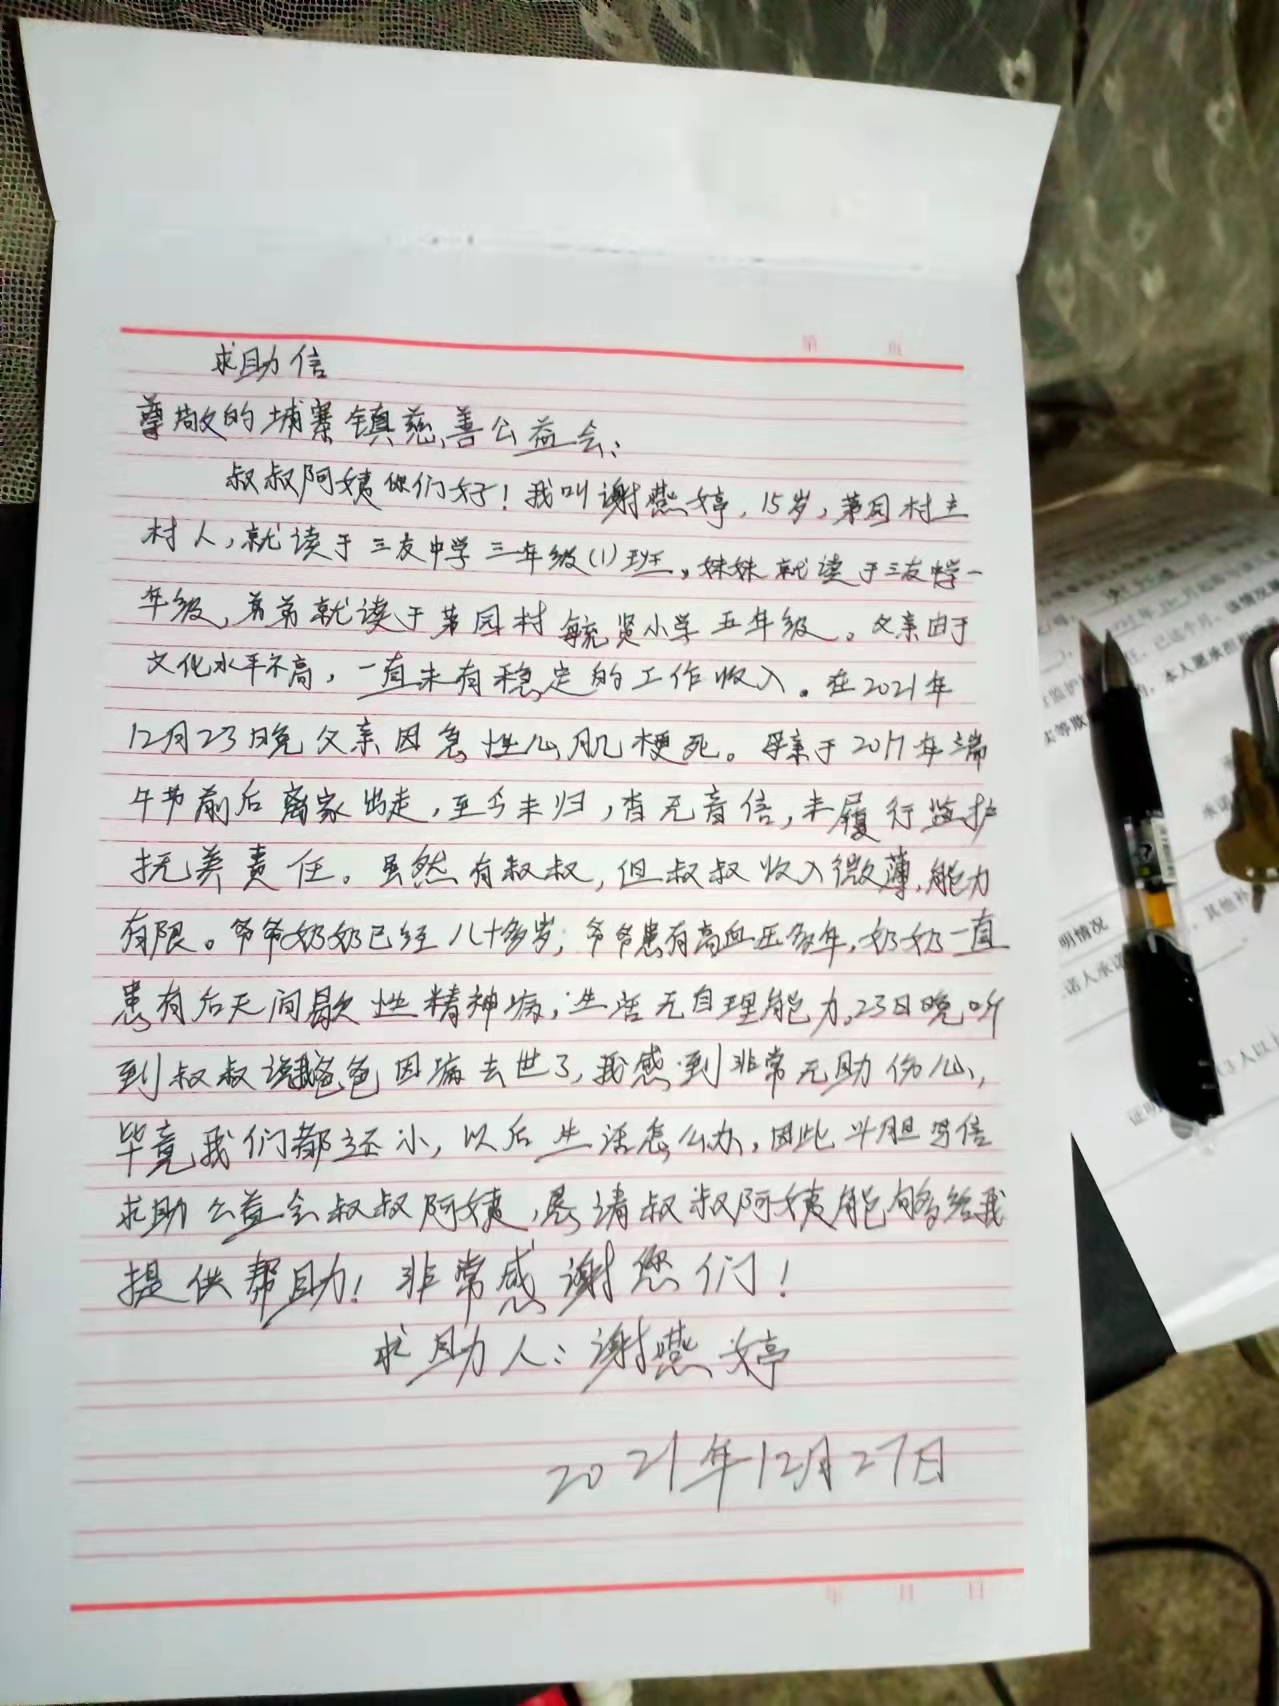 第 页
求助信
尊敬的埔寨镇慈善公益会:
叔叔阿姨你们好!我叫谢燕婷,15岁,茅园村主
村人,就读于三友中学三年级(1)班,妹妹就读于三友中学一
年级,弟弟就读于茅园村毓贤小学五年级。父亲由于
文化水平不高,一直未有稳定的工作收入。在2021年
12月23日晚父亲因急性心肌梗死。母亲于2017年端
午节前后离家出走,至今未归,杳无音信,未履行监护
抚养责任。虽然有叔叔,但叔叔收入微薄,能力
有限。爷爷奶奶已经八十多岁,爷爷患有高血压多年,奶奶一直
患有后天间歇性精神病,生活无自理能力,23日晚听
到叔叔说我爸爸因病去世了,我感到非常无助伤心,
毕竟我们都还小,以后生活怎么办,因此斗胆写信
求助公益会叔叔阿姨,恳请叔叔阿姨能够给我
提供帮助!非常感谢您们!
求助人:谢燕婷
2021年12月27日
年 月 日
本人愿承担相
明情况
诺人承诺
其他补
3人以上
证明